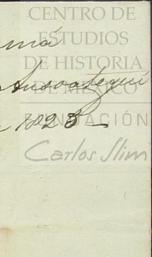 CENTRO DE
ESTUDIOS
DE HISTORIA
DE MÉXICO
FUNDACIÓN
Carlos Slim
má
1823